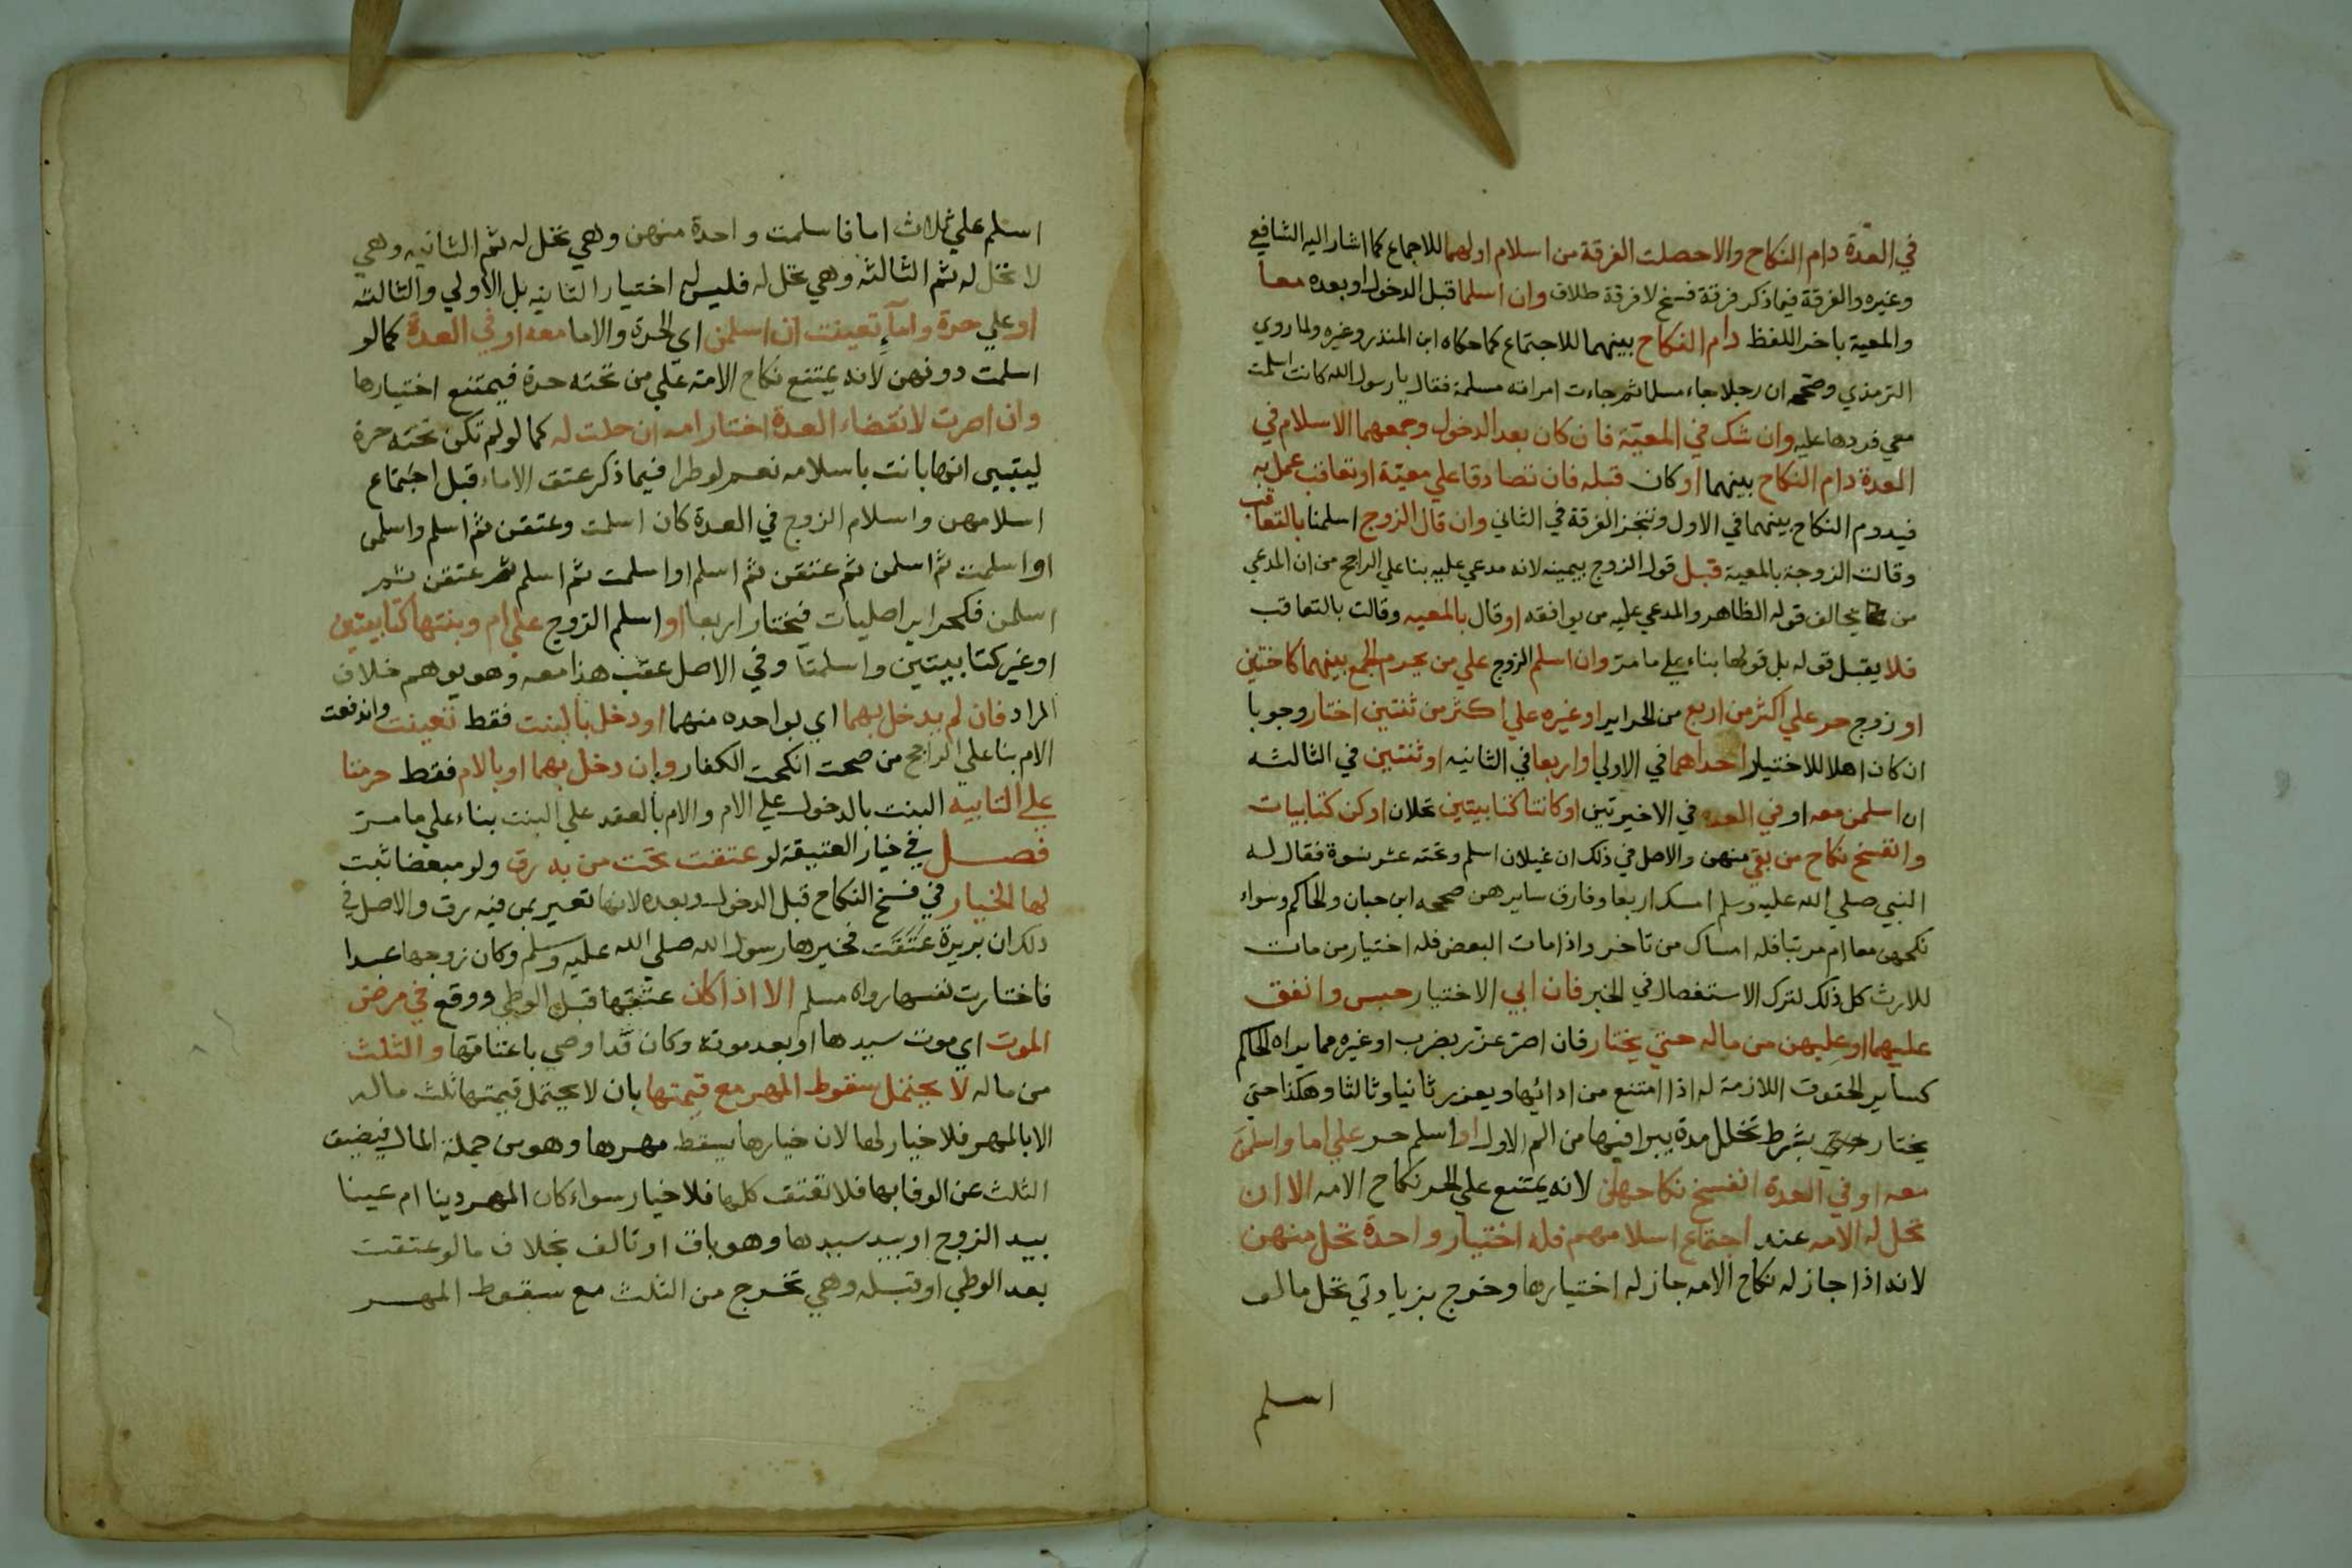 في العدة دام النكاح والاحصلت الفرقة من اسلام اولهما للاجماع كما اشار اليه الشافعي
وغيره والفرقة فيما ذكر فرقة فسخ لا فرقة طلاق وان اسلما قبل الدخول او بعده معا
والمعية باخر اللفظ دام النكاح بينهما للاجتماع كما حكاه ابن المنذر وغيره ولما روي
الترمذي وصححه ان رجلا جاء مسلما ثم جاءت امراته مسلمة فقال يا رسول الله كانت اسلمت
معي فردها عليه وان شك في المعية فان كان بعد الدخول وجمعهما الاسلام في
العدة دام النكاح بينهما او كان قبله فان تصادقا علي معية او تعاقب عمل به
فيدوم النكاح بينهما في الاول وتنجز الفرقة في الثاني وان قال الزوج اسلمنا بالتعاقب
وقالت الزوجة بالمعية قبل قول الزوج بيمينه لانه مدعي عليه بنا علي الراجح من ان المدعي
من يخالف قوله الظاهر والمدعي عليه من يوافقه او قال بالمعيه وقالت بالتعاقب
فلا يقبل قوله بل قولها بناء علي ما مر وان اسلم الزوج علي من يحرم الجمع بينهما كاختين
او زوج حر علي اكثر من اربع من الحراير او غيره علي اكثر من ثنتين اختار وجوبا
ان كان اهلا للاختيار احداهما في الاولي واربعا في الثانيه او ثنتين في الثالثه
ان اسلمن معه او في العده في الاخيرتين او كانتا كتابيتين تحلان او كن كتابيات
وانفسخ نكاح من بقي منهن والاصل في ذلك ان غيلان اسلم وتحته عشر نسوة فقال له
النبي صلي الله عليه وسلم امسك اربعا وفارق سايرهن صححه ابن حبان والحاكم وسواء
نكحهن معا ام مرتبا فله امساك من تاخر واذا مات البعض فله اختيار من مات
للارث كل ذلك لترك الاستفصال في الخبر فان ابي الاختيار حبس وانفق
عليهما او عليهن من ماله حتي يختار فان اصر عزر بضرب او غيره مما يراه الحاكم
كساير الحقوق اللازمة له اذا امتنع من ادائها ويعزر ثانيا وثالثا وهكذا حتي
يختار حتي بشرط تخلل مدة يبرا فيها من الم الاول او اسلم حر علي اما واسلمن
معه او في العدة انفسخ نكاحهن لانه يمتنع علي الحر نكاح الامه الا ان
تحل له الامه عند اجتماع اسلامهم فله اختيار واحدة تحل منهن
لانه اذا جاز له نكاح الامه جاز له اختيارها وخرج بزيادتي تحل ما لو
اسلم
اسلم علي ثلاث اما فاسلمت واحدة منهن وهي تحل له ثم الثانيه وهي
لا تحل له ثم الثالثه وهي تحل له فليس له اختيار الثانيه بل الاولي والثالثه
او علي حرة واماء تعينت ان اسلمن اي الحرة والاما معه او في العدة كما لو
اسلمت دونهن لانه يمتنع نكاح الامة علي من تحته حرة فيمتنع اختيارها
وان اصرت لانقضاء العدة اختار امه ان حلت له كما لو لم تكن تحته حرة
ليتبين انها بانت باسلامه نعم لو طرا فيما ذكر عتق الاماء قبل اجتماع
اسلامهن واسلام الزوج في العدة كان اسلمت وعتقن ثم اسلم واسلمن
او اسلمت ثم اسلمن ثم عتقن ثم اسلم او اسلمت ثم اسلم ثم عتقن ثم
اسلمن فكحراير اصليات فيختار اربعا او اسلم الزوج علي ام وبنتها كتابيتين
او غير كتابيتين واسلمتا وفي الاصل عقب هذا معه وهو يوهم خلاف
المراد فان لم يدخل بهما اي بواحده منهما او دخل بالبنت فقط تعينت واندفعت
الام بنا علي الراجح من صحت انكحت الكفار وان دخل بهما او بالام فقط حرمتا
علي التابيد البنت بالدخول علي الام والام بالعقد علي البنت بناء علي ما مر
فصل في خيار العتيقة لو عتقت تحت من به رق ولو مبعضا ثبت
لها الخيار في فسخ النكاح قبل الدخول وبعده لانها تعير بمن فيه رق والاصل في
ذلك ان بريرة عتقت فخيرها رسول الله صلي الله عليه وسلم وكان زوجها عبدا
فاختارت نفسها رواه مسلم الا اذا كان عتقها قبل الوطي ووقع في مرض
الموت اي موت سيدها او بعد موته وكان قد اوصي باعتاقها والثلث
من ماله لا يحتمل سقوط المهر مع قيمتها بان لا يحتمل قيمتها ثلث ماله
الا بالمهر فلا خيار لها لان خيارها يسقط مهرها وهو من جملة المال فيضيق
الثلث عن الوفا بها فلا تعتق كلها فلا خيار سواء كان المهر دينا ام عينا
بيد الزوج او بيد سيدها وهو باق او تالف بخلاف ما لو عتقت
بعد الوطي او قبله وهي تخرج من الثلث مع سقوط المهر